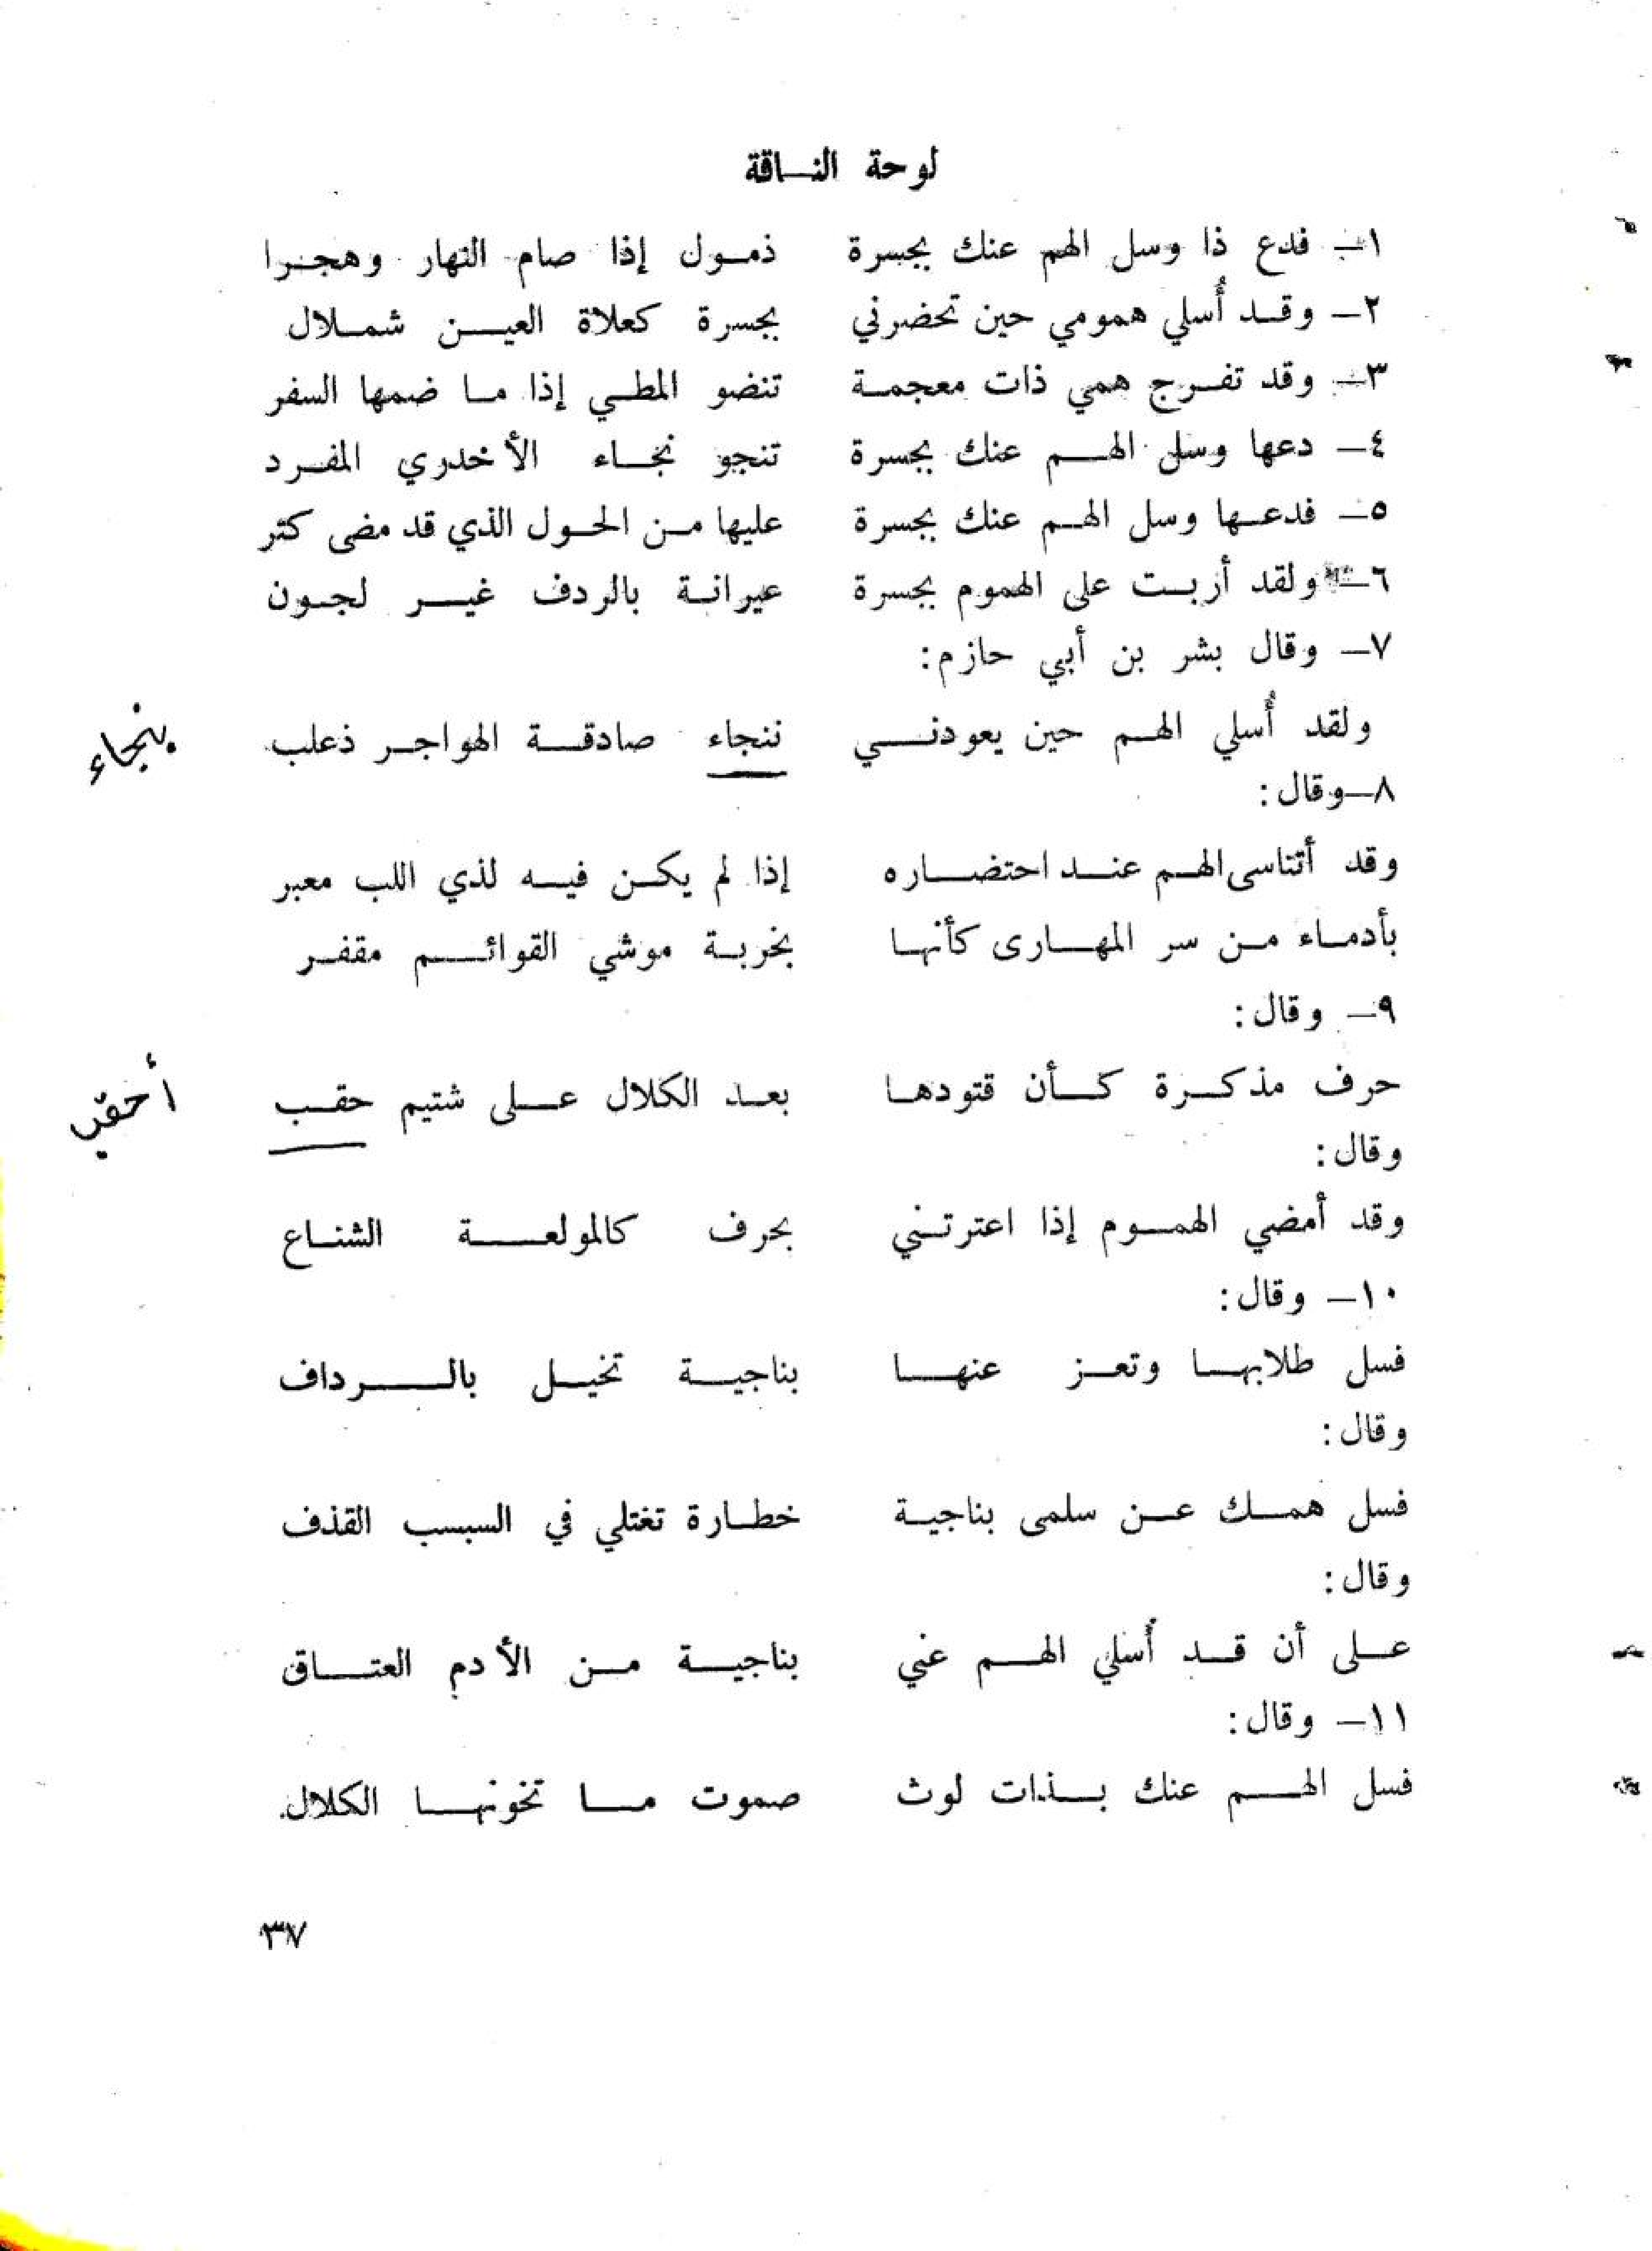 لوحة الناقة
١- فدع ذا وسل الهم عنك بجسرة ذمول إذا صام النهار وهجرا
٢- وقد أُسلي همومي حين تحضرني بجسرة كعلاة العين شملال
٣- وقد تفرج همي ذات معجمة تنضو المطي إذا ما ضمها السفر
٤- دعها وسل الهم عنك بجسرة تنجو نجاء الأخدري المفرد
٥- فدعها وسل الهم عنك بجسرة عليها من الحول الذي قد مضى كتر
٦- ولقد أربت على الهموم بجسرة عيرانة بالردف غير لجون
٧- وقال بشر بن أبي حازم:
ولقد أُسلي الهم حين يعودني ننجاء صادقة الهواجر ذعلب بنجاء
٨- وقال:
وقد أتناسى الهم عند احتضاره إذا لم يكن فيه لذي اللب معبر
بأدماء من سر المهارى كأنها بخربة موشي القوائم مقفر
٩- وقال:
حرف مذكرة كأن قتودها بعد الكلال على شتيم حقب أحقب
وقال:
وقد أمضي الهموم إذا اعترتني بحرف كالمولعة الشناع
١٠- وقال:
فسل طلابها وتعز عنها بناجية تخيل بالرداف
وقال:
فسل همك عن سلمى بناجية خطارة تغتلي في السبسب القذف
وقال:
على أن قد أُسلي الهم عني بناجية من الأدم العتاق
١١- وقال:
فسل الهم عنك بذات لوث صموت ما تخونها الكلال
٣٧